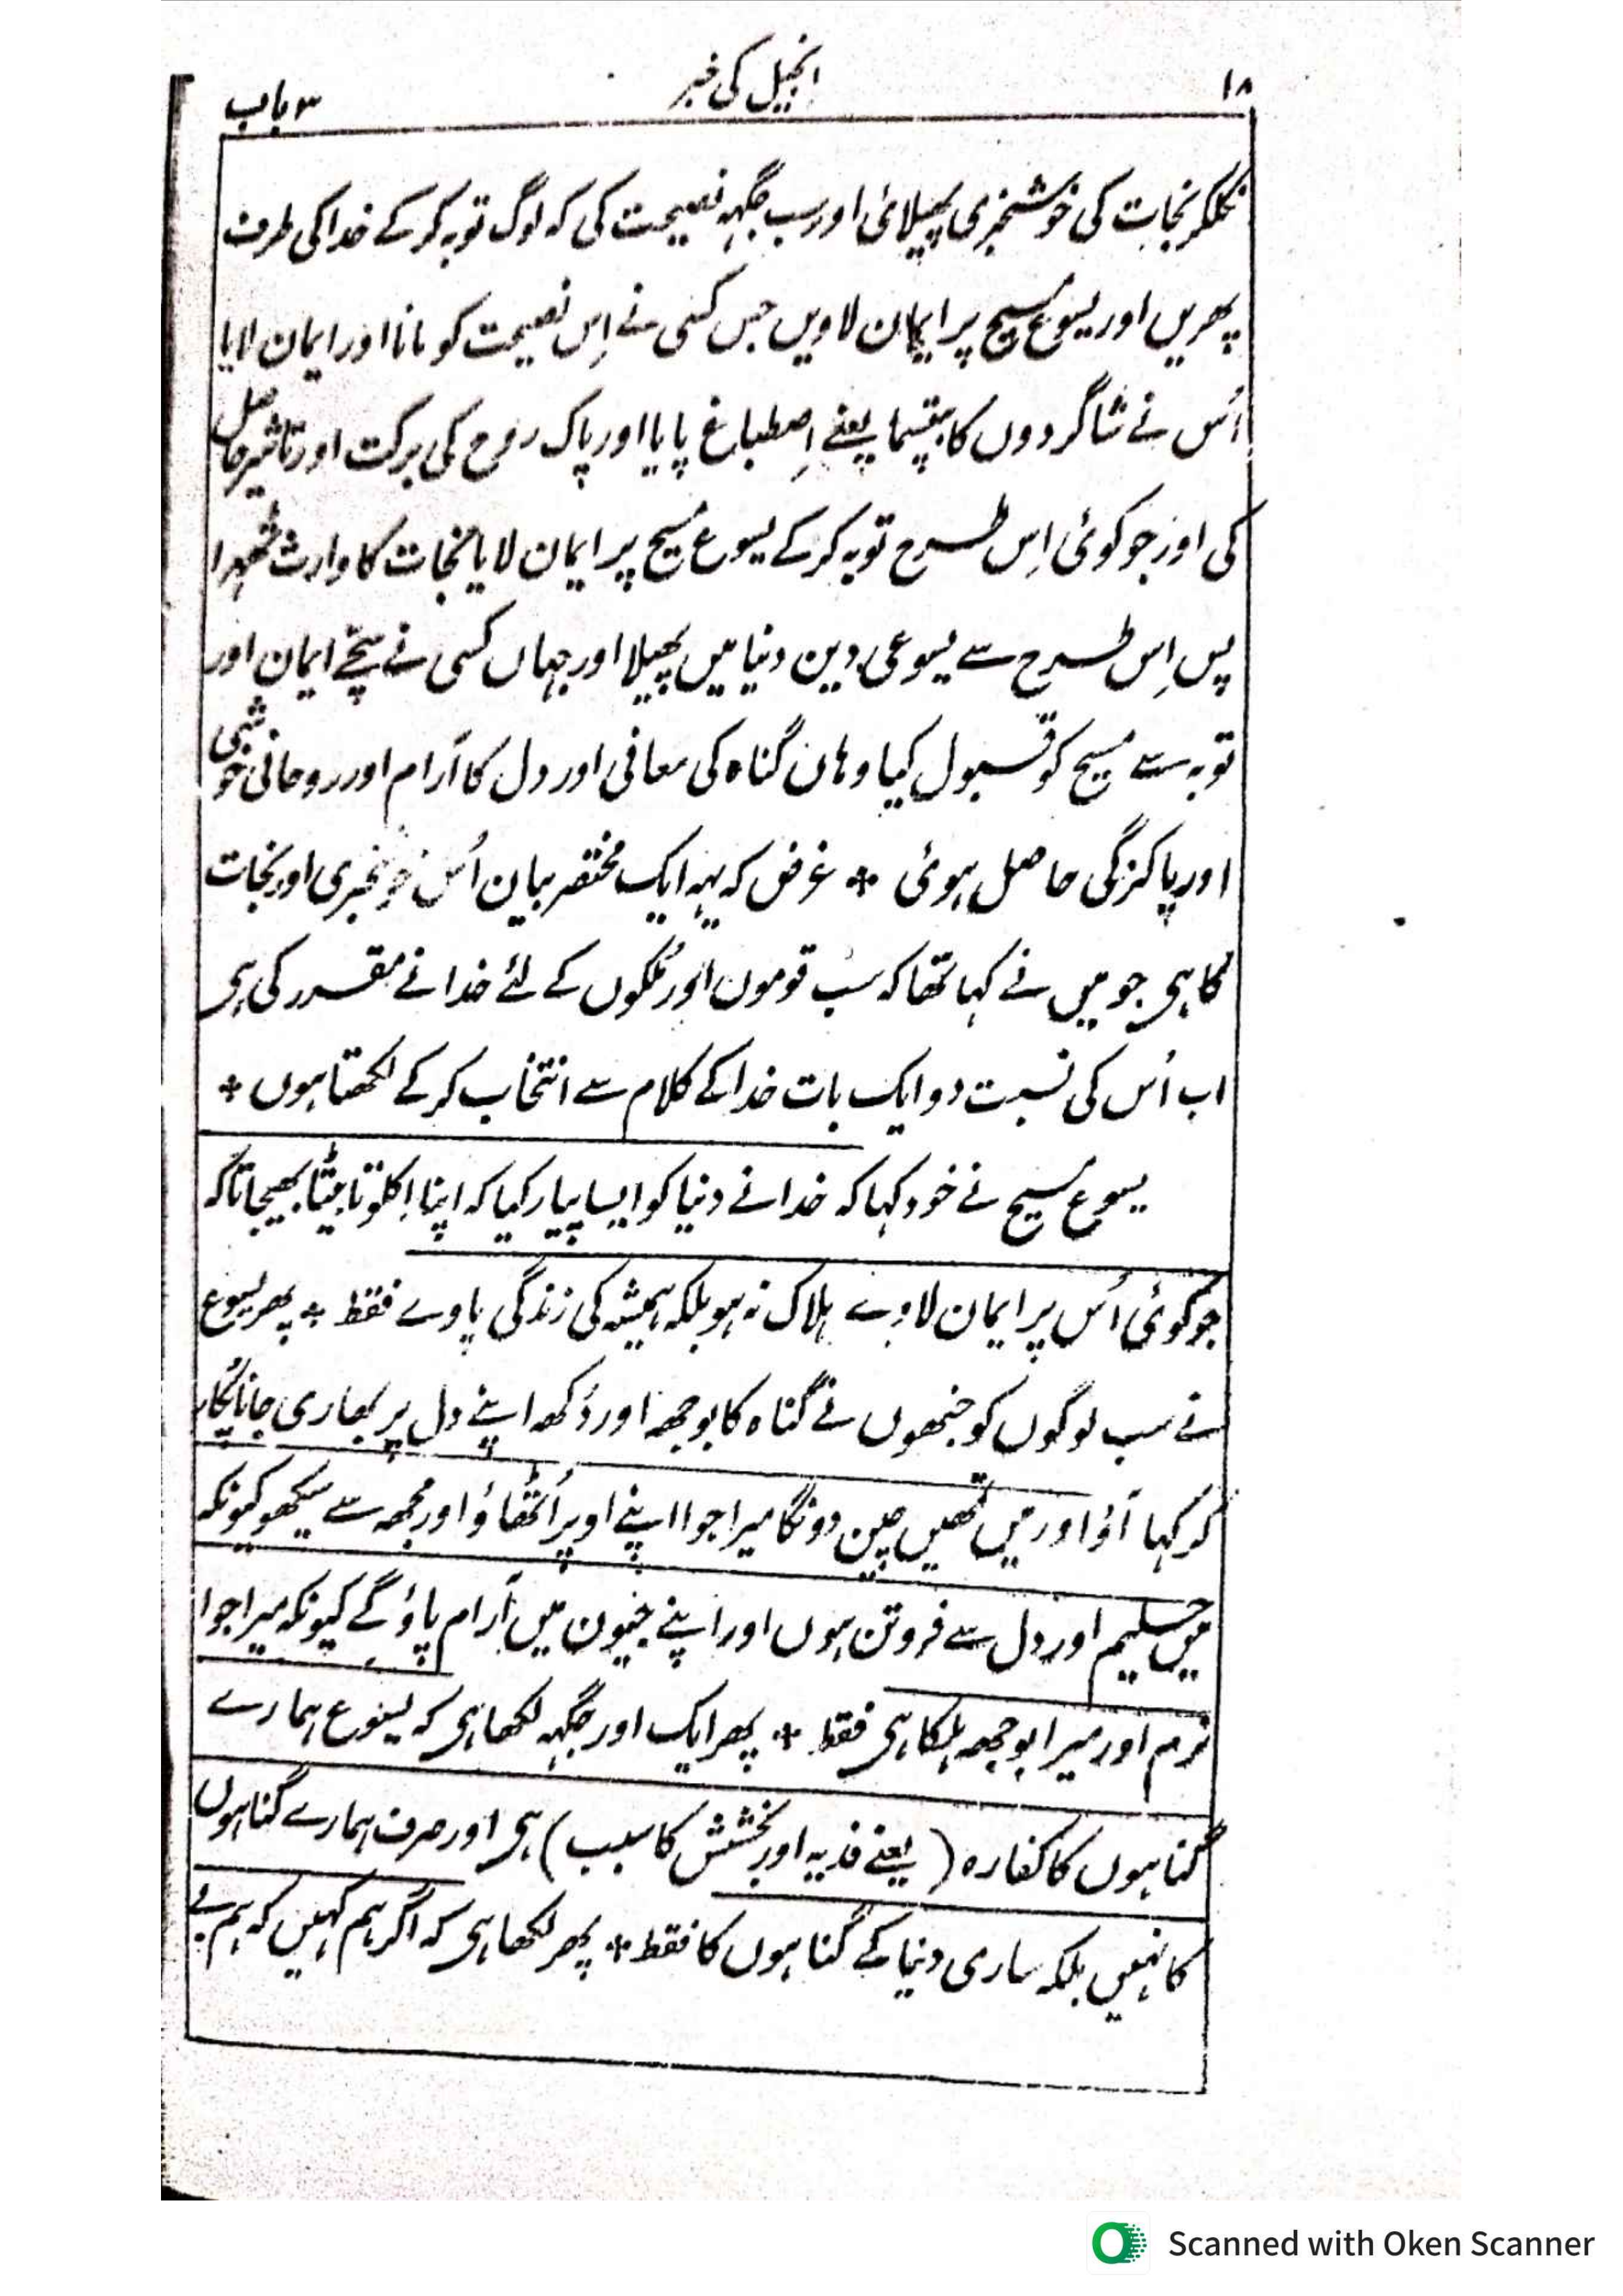 ۱۸ انجیل کی خبر ۳ باب
نکلکر نجات کی خوشخبری پھیلائی اور سب جگہہ نصیحت کی کہ لوگ توبہ کر کے خدا کی طرف
پھریں اور یسوع مسیح پر ایمان لاویں جس کسی نے اِس نصیحت کو مانا اور ایمان لایا
اُس نے شاگردوں کا بپتسما یعنے اِصطباغ پایا اور پاک روح کی برکت اور تاثیر حاصل
کی اور جو کوئی اِس طرح توبہ کر کے یسوع مسیح پر ایمان لایا نجات کا وارث ٹھہرا
پس اِس طرح سے یسوعی دین دنیا میں پھیلا اور جہاں کسی نے سچّے ایمان اور
توبہ سے مسیح کو قبول کیا وہاں گناہ کی معافی اور دل کا آرام اور روحانی خوشی
اور پاکزگی حاصل ہوئی * غرض کہ یہہ ایک مختصر بیان اُس خوشخبری اور نجات
کا ہی جو میں نے کہا تھا کہ سب قوموں اور مُلکوں کے لئے خدا نے مقرر کی ہی
اب اُس کی نسبت دو ایک بات خدا کے کلام سے انتخاب کر کے لکھتا ہوں *
یسوع مسیح نے خود کہا کہ خدا نے دنیا کو ایسا پیار کیا کہ اپنا اِکلوتا بیٹا بھیجا تاکہ
جو کوئی اُس پر ایمان لاوے ہلاک نہ ہو بلکہ ہمیشہ کی زندگی پاوے فقط * پھر یسوع
نے سب لوگوں کو جنھوں نے گناہ کا بوجھہ اور دُکھہ اپنے دل پر بھاری جانا پُکار
کر کہا آؤ اور میں تمھیں چین دونگا میرا جوا اپنے اوپر اُٹھاؤ اور مجھہ سے سیکھو کیونکہ
میں حلیم اور دل سے فروتن ہوں اور اپنے جیون میں آرام پاؤ گے کیونکہ میرا جوا
نرم اور میرا بوجھہ ہلکا ہی فقط * پھر ایک اور جگہہ لکھا ہی کہ یسوع ہمارے
گناہوں کا کفارہ (یعنے فدیہ اور بخشش کا سبب) ہی اور صرف ہمارے گناہوں
کا نہیں بلکہ ساری دنیا کے گناہوں کا فقط * پھر لکھا ہی کہ اگر ہم کہیں کہ ہم بے
Scanned with Oken Scanner